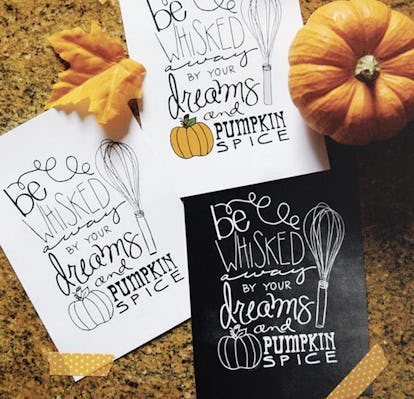 be
WHISKED
away
BY YOUR
dreams
and
PUMPKIN
SPICE
be
WHISKED
away
BY YOUR
dreams
and
PUMPKIN
SPICE
be
WHISKED
away
BY YOUR
dreams
and
PUMPKIN
SPICE